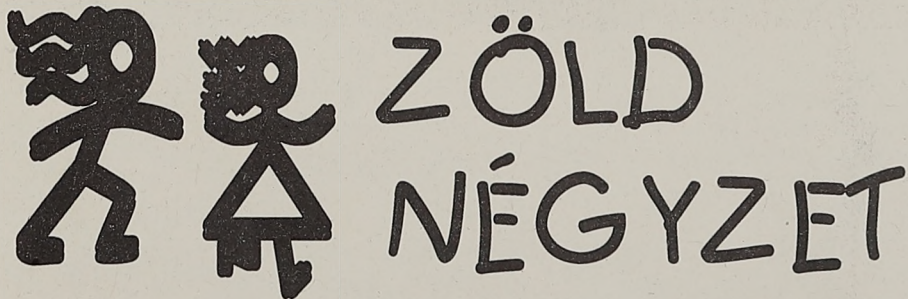 ZÖLD
NÉGYZET